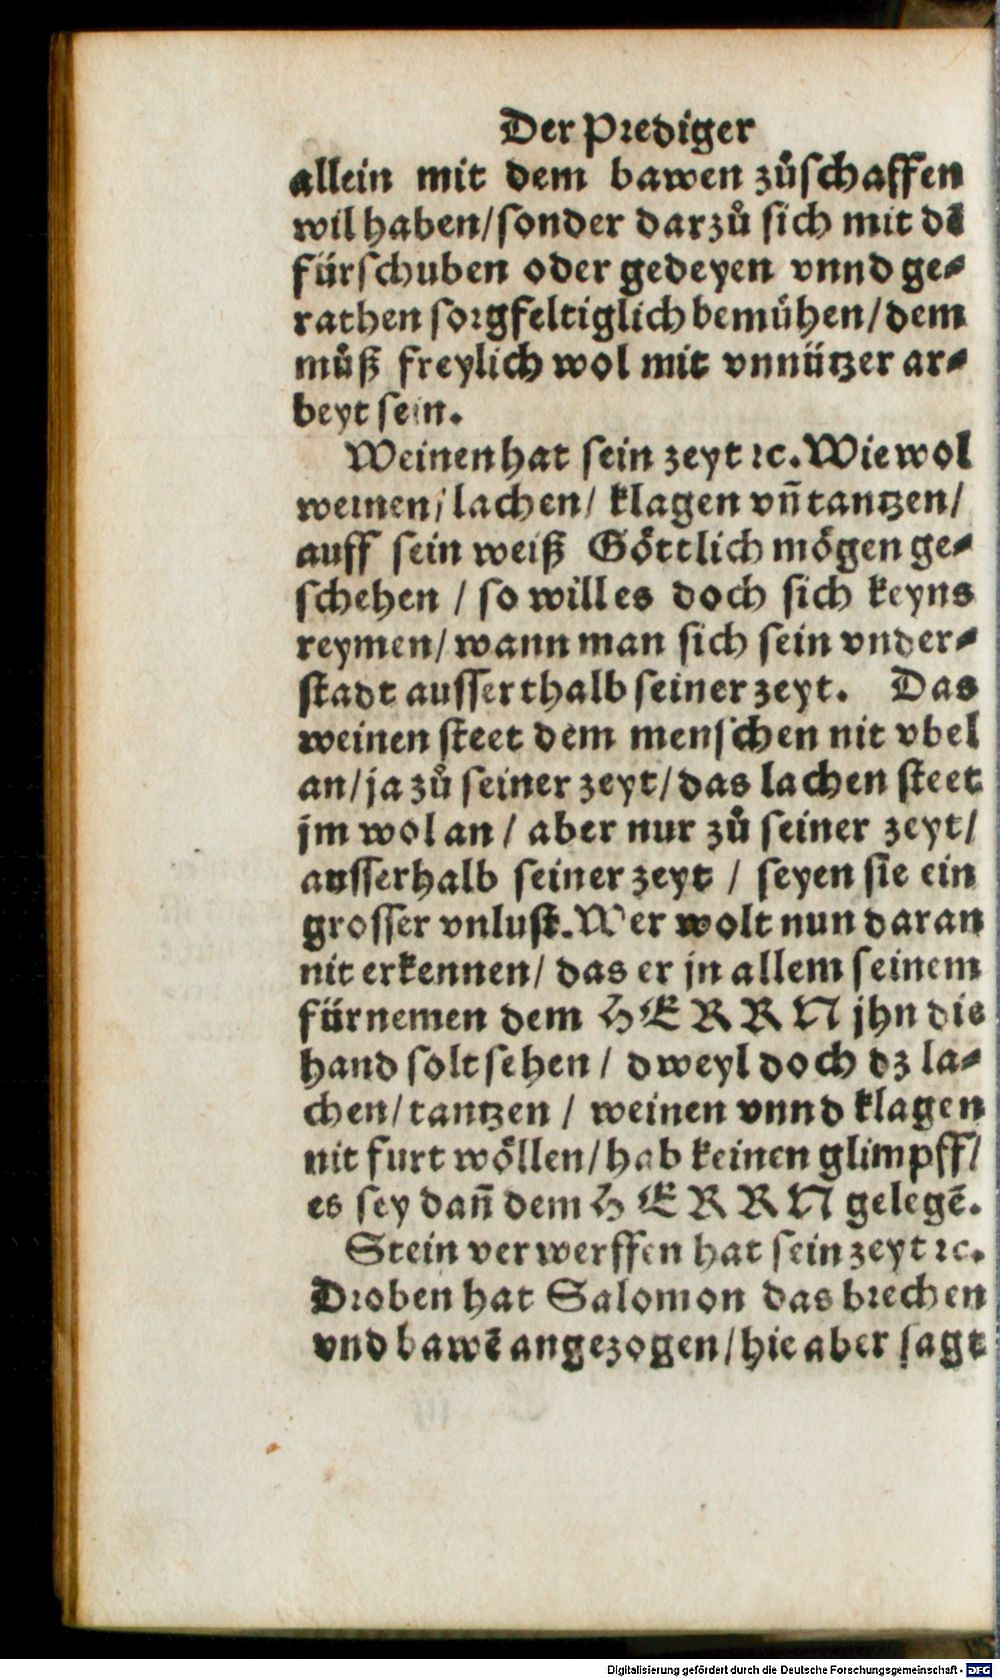 Der Prediger
allein mit dem bawen zůschaffen
wil haben/sonder darzů sich mit dē
fürschuben oder gedeyen vnnd ge⸗
rathen sorgfeltiglich bemühen/dem
můß freylich wol mit vnnützer ar⸗
beyt sein.
Weinen hat sein zeyt ꝛc. Wiewol
weinen/lachen/ klagen vñ tantzen/
auff sein weiß Göttlich mögen ge⸗
schehen / so will es doch sich keyns
reymen/wann man sich sein vnder⸗
stadt ausserthalb seiner zeyt. Das
weinen steet dem menschen nit vbel
an/ja zů seiner zeyt/das lachen steet
jm wol an / aber nur zů seiner zeyt/
ausserhalb seiner zeyt / seyen sie ein
grosser vnlust. Wer wolt nun daran
nit erkennen/ das er jn allem seinem
fürnemen dem HERRN jhn die
hand solt sehen / dweyl doch dz la⸗
chen/tantzen / weinen vnnd klagen
nit furt wöllen/hab keinen glimpff/
es sey dañ dem HERRN gelegē.
Stein verwerffen hat sein zeyt ꝛc.
Droben hat Salomon das brechen
vnd bawē angezogen/hie aber sagt
Digitalisierung gefördert durch die Deutsche Forschungsgemeinschaft - DFG